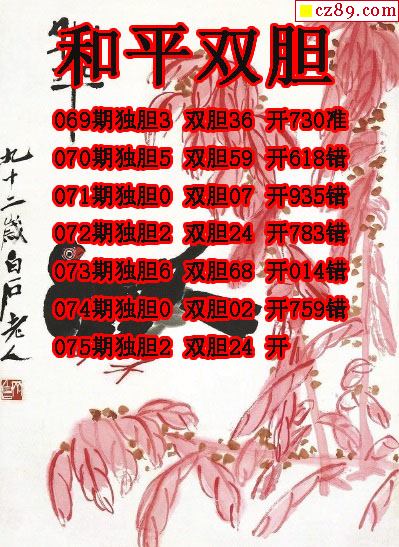 cz89.com
和平双胆
069期独胆3 双胆36 开730准
070期独胆5 双胆59 开618错
071期独胆0 双胆07 开935错
072期独胆2 双胆24 开783错
073期独胆6 双胆68 开014错
074期独胆0 双胆02 开759错
075期独胆2 双胆24 开
九十二岁白石老人